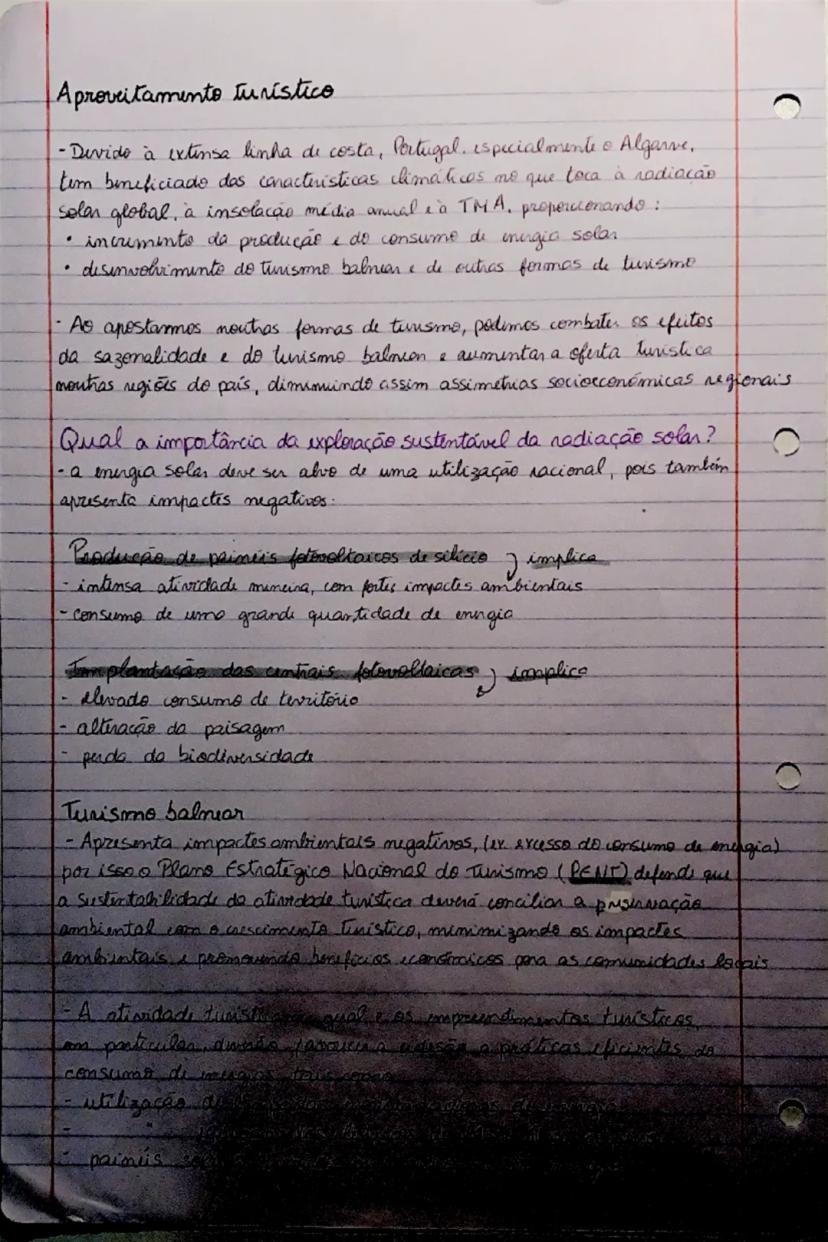 Aproveitamento turístico
- Devido à extensa linha de costa, Portugal, especialmente o Algarve,
tem beneficiado das características climáticas no que toca à radiação
solar global, à insolação média anual e à TMA, proporcionando:
• incremento da produção e do consumo de energia solar
• desenvolvimento do turismo balnear e de outras formas de turismo
- Ao apostarmos noutras formas de turismo, podemos combater os efeitos
da sazonalidade e do turismo balnear e aumentar a oferta turística
noutras regiões do país, diminuindo assim assimetrias socioeconómicas regionais
Qual a importância da exploração sustentável da radiação solar?
- a energia solar deve ser alvo de uma utilização racional, pois também
apresenta impactes negativos:
Produção de painéis fotovoltaicos de silício implica
- intensa atividade mineira, com fortes impactes ambientais
- consumo de uma grande quantidade de energia
Implantação das centrais fotovoltaicas implica
- elevado consumo de território
- alteração da paisagem
- perda da biodiversidade
Turismo balnear
- Apresenta impactes ambientais negativos, (ex excesso do consumo de energia)
por isso o Plano Estratégico Nacional do Turismo (PENT) defende que
a sustentabilidade da atividade turística deverá conciliar a preservação
ambiental com o crescimento turístico, minimizando os impactes
ambientais e promovendo benefícios económicos para as comunidades locais
- A atividade geral e os empreendimentos turísticos,
em particular, deverão favorecer a adesão a práticas eficientes do
consumo de energia tais como
- utilização de
-
- painéis